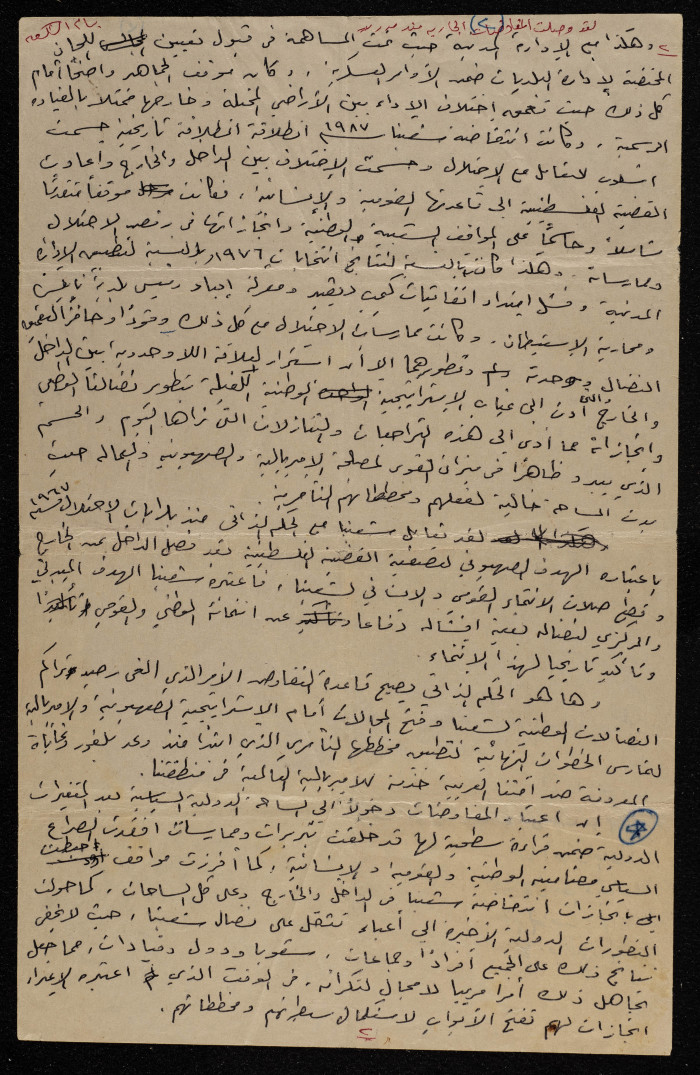 لقد وصلت المفاوضات الجارية منذ مدريد
٢ وهكذا مع الإدارة المدنية حيث تمت المساهمة في قبول تعيين اللجان
المختصة لإدارة البلديات ضمن الأوامر العسكرية ، وكان موقف الجماهير واضحاً أمام
كل ذلك حيث تعمق اختلاف الأداء بين الأراضي المحتلة وخارجها ممثلاً بالقيادة
الرسمية . وكانت انتفاضة شعبنا ١٩٨٧ انطلاقة تاريخية حسمت
أسلوب التعامل مع الاحتلال وحسمت الاختلاف بين الداخل والخارج وأعادت
القضية الفلسطينية إلى قاعدتها القومية والإنسانية ، فكانت موقفاً متقدماً
شاملاً وحاسماً على المواقف الشعبية والوطنية وانجازاتها في رفض الاحتلال
وممارساته . وهكذا كانت بالنسبة لنتائج انتخابات ١٩٧٦ وبالنسبة لتطبيق الإدارة
المدنية وفشل امتداد اتفاقيات كمب ديفيد ومعركة إبعاد رئيس بلدية نابلس
ومحاربة الاستيطان . وكانت ممارسات الاحتلال مع كل ذلك وقوداً وحافزاً لتعميق
النضال ووحدته وتطويرهما إلا أن استمرار العلاقة اللاوحدوية بين الداخل
والخارج التي أدت إلى غياب الاستراتيجية الوطنية الكفيلة بتطوير نضالنا الوطني
وانجازاته مما أدى إلى هذه التراجعات والتنازلات التي نراها اليوم والحسم
الذي يبدو ظاهراً في ميزان القوى لمصلحة الإمبريالية والصهيونية والعمالة حيث
بدت الساحة خالية لفعلهم ومخططاتهم التآمرية .
لقد تعامل شعبنا مع الحكم الذاتي منذ بدايات الاحتلال سنة ١٩٦٧
باعتباره الهدف الصهيوني لتصفية القضية الفلسطينية بعد فصل الداخل عن الخارج
وقطع صلات الانتماء القومي والإنساني لشعبنا ، فاعتبره شعبنا الهدف الميداني
والمركزي لنضاله بغية إفشاله دفاعا عن انتمائه الوطني والقومي
وتأكيد تاريخيا لهذا الانتماء .
وها هو الحكم الذاتي يصبح قاعدة التفاوض الأمر الذي ألغى رصيد تراكم
النضالات الوطنية لشعبنا وفتح المجالات أمام الاستراتيجية الصهيونية والإمبريالية
لتمارس الخطوات النهائية لتطبيق مخططها التآمري الذي ابتدأ منذ وعد بلفور
المعروفة ضد أمتنا العربية خدمة للإمبريالية العالمية في منطقتنا .
إن اعتبار المفاوضات دخولاً إلى الساحة الدولية السياسية بعد المتغيرات
الدولية ضمن قراءة سطحية لها قد خلقت تبريرات وممارسات أفقدت الصراع
السياسي مضامينه الوطنية والقومية والإنسانية ، كما أفرزت مواقف أحبطت
بانجازات انتفاضة شعبنا في الداخل والخارج وعلى كل الساحات ، كما حولت
التطورات الدولية الأخيرة إلى أعباء تثقل على نضال شعبنا ، حيث لا تخفى
نتائج ذلك على الجميع أفراداً وجماعات ، شعوباً ودول وقيادات ، مما جعل
تجاهل ذلك أمراً مريباً لا مجال لنكرانه ، في الوقت الذي اعتبره الأعداء
انجازات لهم تفتح الأبواب لاستكمال سيطرتهم ومخططاتهم .
٢